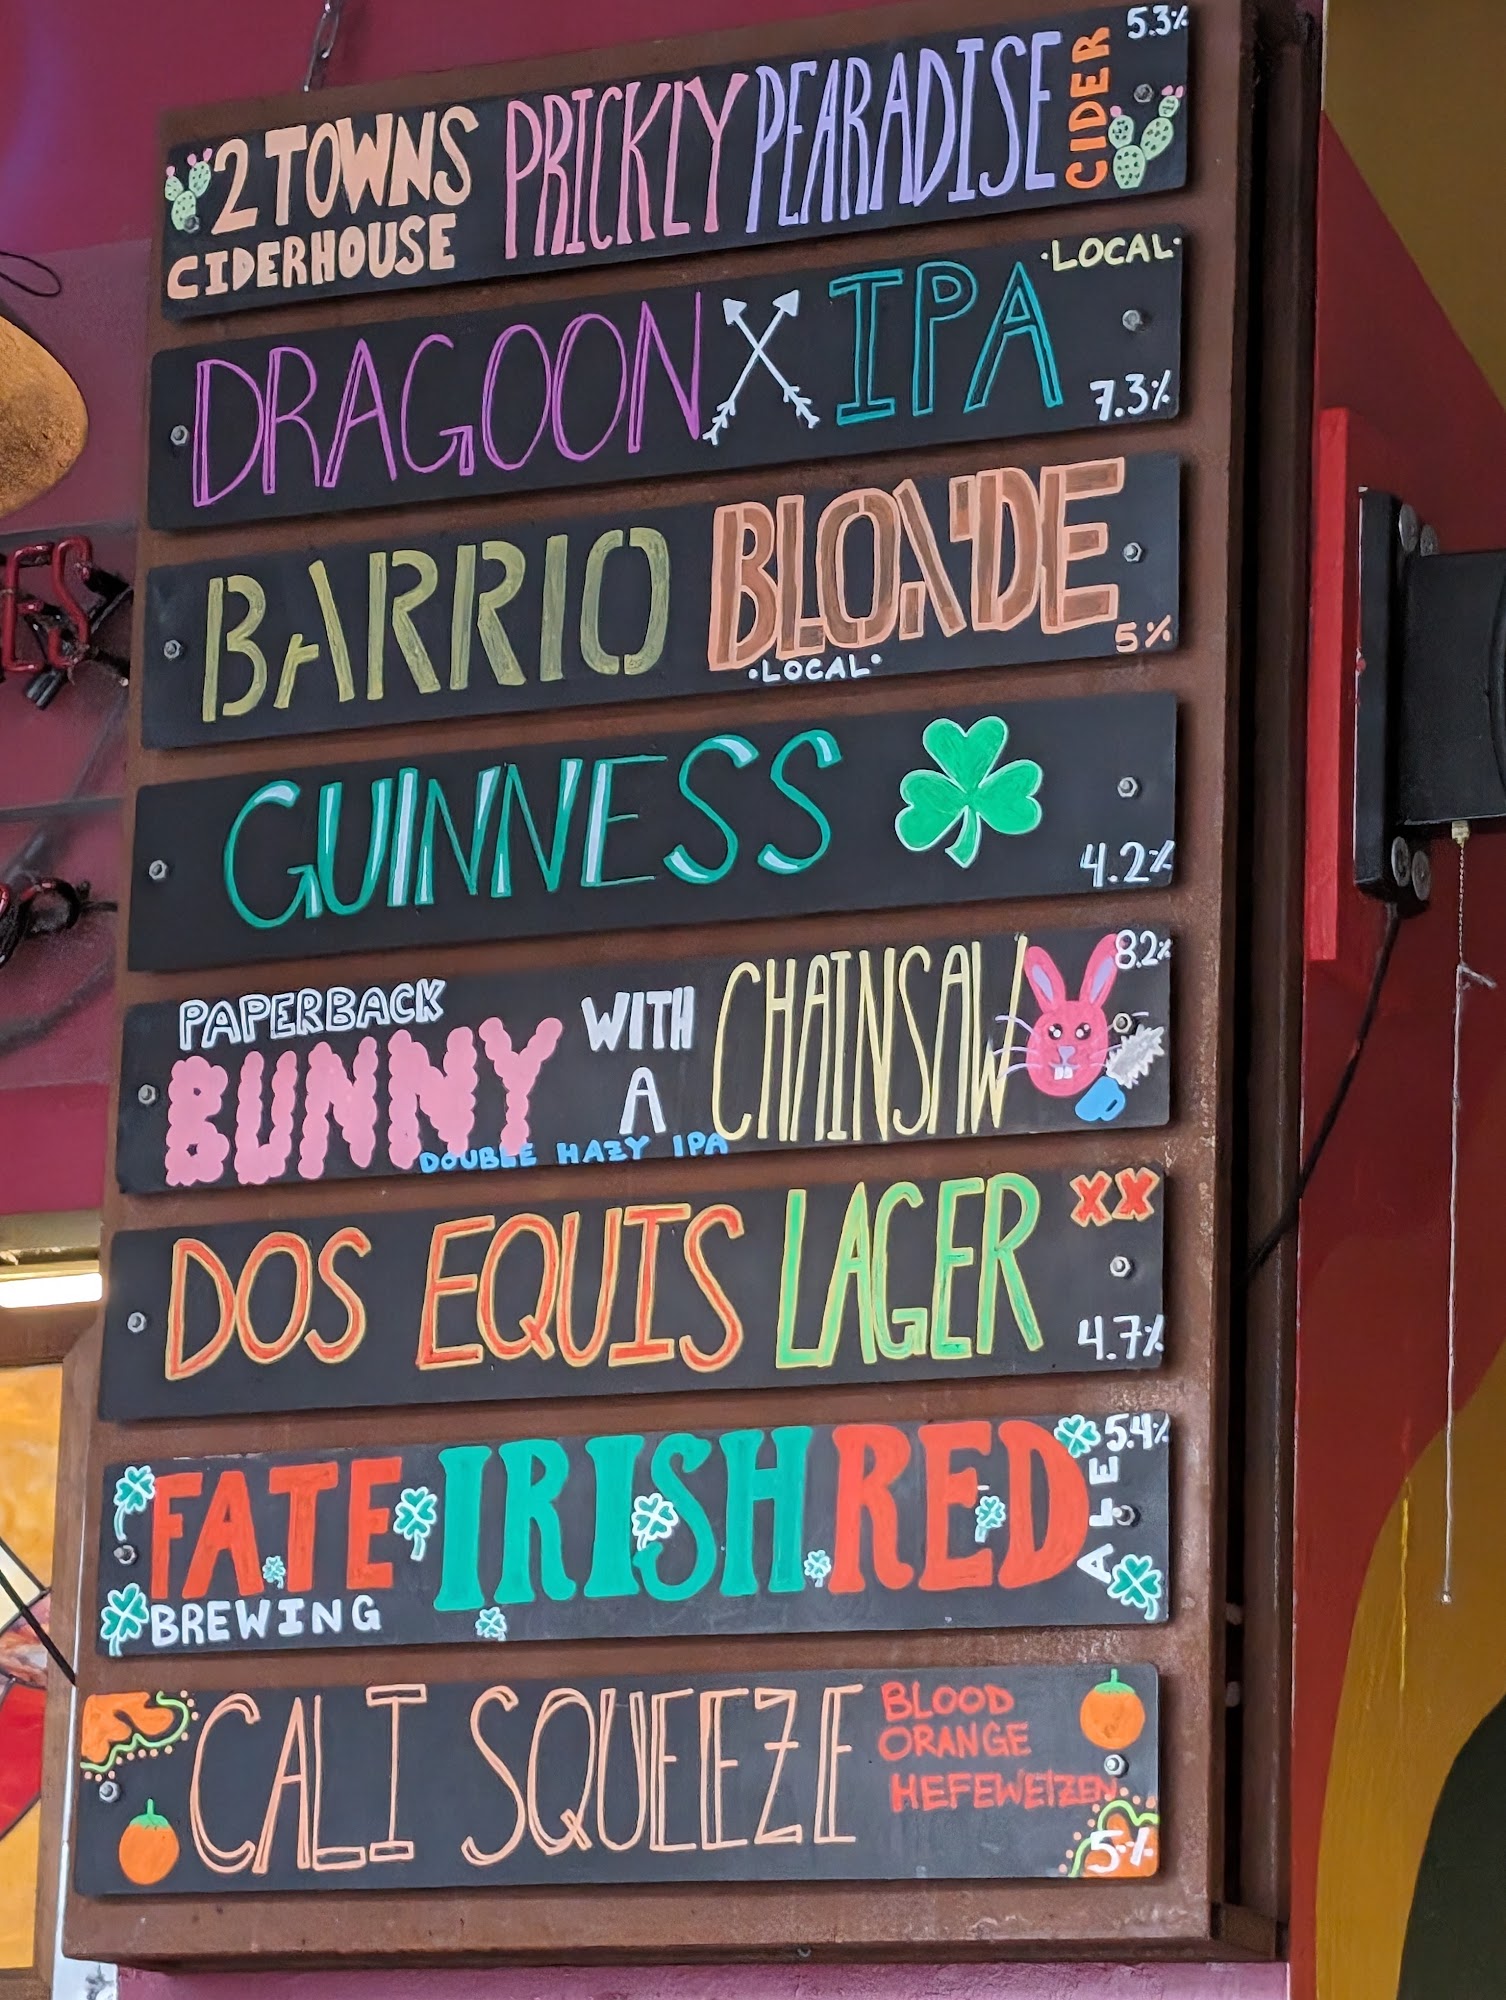 2 TOWNS
CIDERHOUSE
PRICKLY PEARADISE
CIDER
5.3%
DRAGOON IPA
·LOCAL·
7.3%
BARRIO BLONDE
·LOCAL·
5%
GUINNESS
4.2%
PAPERBACK
BUNNY
WITH
A
CHAINSAW
DOUBLE HAZY IPA
8.2%
DOS EQUIS LAGER
XX
4.7%
FATE
BREWING
IRISH RED
ALE
5.4%
CALI SQUEEZE
BLOOD
ORANGE
HEFEWEIZEN
5%